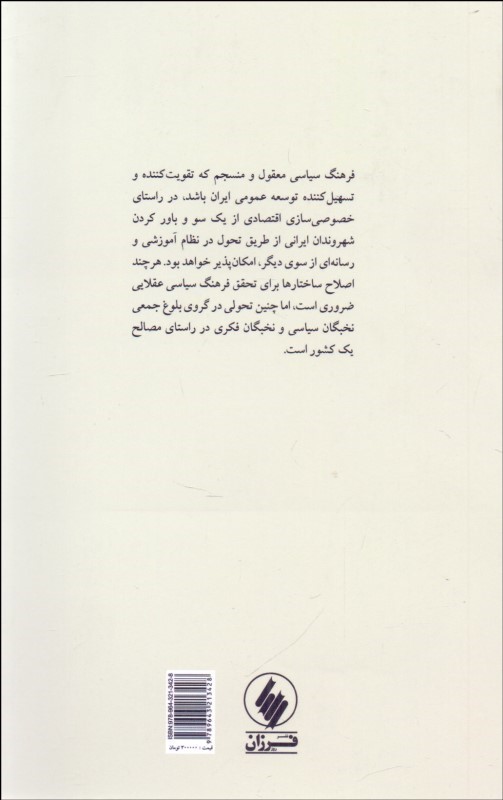 فرهنگ سیاسی معقول و منسجم که تقویت‌کننده و
تسهیل‌کننده توسعه عمومی ایران باشد، در راستای
خصوصی‌سازی اقتصادی از یک سو و باور کردن
شهروندان ایرانی از طریق تحول در نظام آموزشی و
رسانه‌ای از سوی دیگر، امکان‌پذیر خواهد بود. هرچند
اصلاح ساختارها برای تحقق فرهنگ سیاسی عقلایی
ضروری است، اما چنین تحولی در گروی بلوغ جمعی
نخبگان سیاسی و نخبگان فکری در راستای مصالح
یک کشور است.
ISBN:978-964-321-342-8
9789643213428
قیمت: ۳۰۰۰۰۰ تومان
فرزان